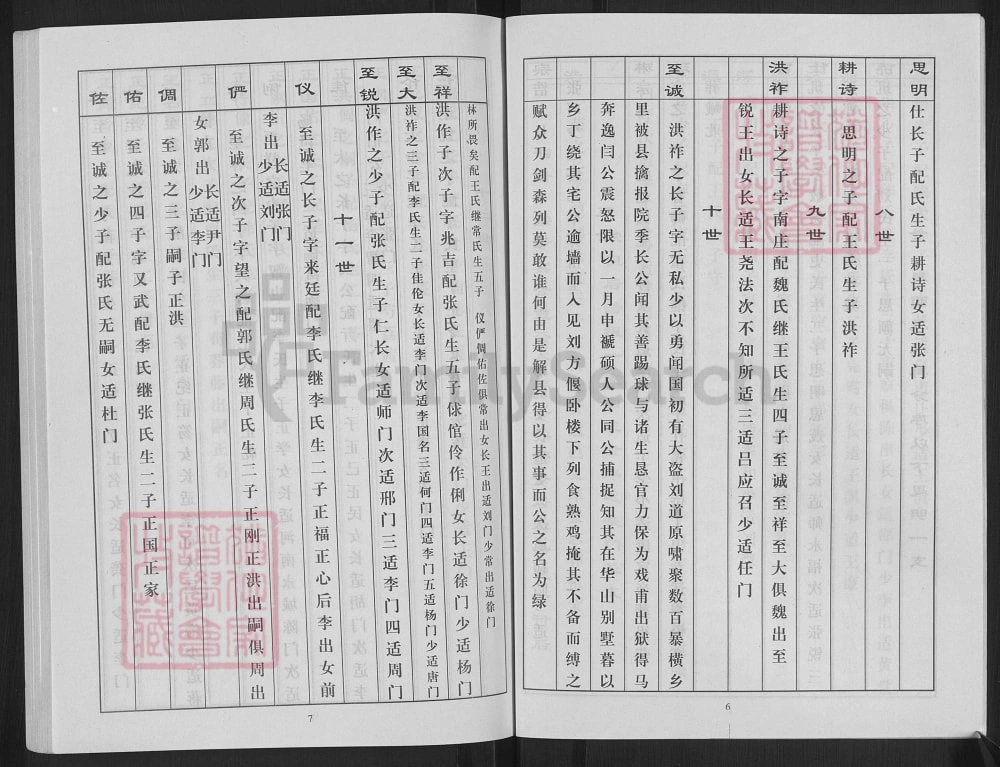 思明 仕长子配氏生子耕诗女适张门
八世
耕诗 思明之子配王氏生子洪祚
九世
洪祚 耕诗之子字南庄配魏氏继王氏生四子至诚至祥至大俱魏出至
锐王出女长适王尧法次不知所适三适吕应召少适任门
十世
至诚 洪祚之长子字无私少以勇闻国初有大盗刘道原啸聚数百暴横乡
里被县擒报院季长公闻其善踢球与诸生恳官力保为戏甫出狱得马
奔逸闫公震怒限以一月申褫硕人公同公捕捉知其在华山别墅暮以
乡丁绕其宅公逾墙而入见刘方偃卧楼下列食熟鸡掩其不备而缚之
赋众刀剑森列莫敢谁何由是解县得以其事而公之名为绿
6
林所畏矣配王氏继常氏生五子 仪俨倜佑佐俱常出女长王出适刘门少常出适徐门
至祥 洪作子次子字兆吉配张氏生五子俅倌伶作俐女长适徐门少适杨门
至大 洪祚之三子配李氏生二子佳伦女长适李门次适李国名三适何门四适李门五适杨门少适唐门
至锐 洪作之少子配张氏生子仁长女适师门次适邢门三适李门四适周门
十一世
仪 至诚之长子字来廷配李氏继李氏生二子正福正心后李出女前
李出长适张门少适刘门
俨 至诚之次子字望之配郭氏继周氏生二子正刚正洪出嗣俱周出
女郭出长适尹门少适李门
倜 至诚之三子嗣子正洪
佑 至诚之四子字又武配李氏继张氏生二子正国正家
佐 至诚之少子配张氏无嗣女适杜门
7
FamilySearch